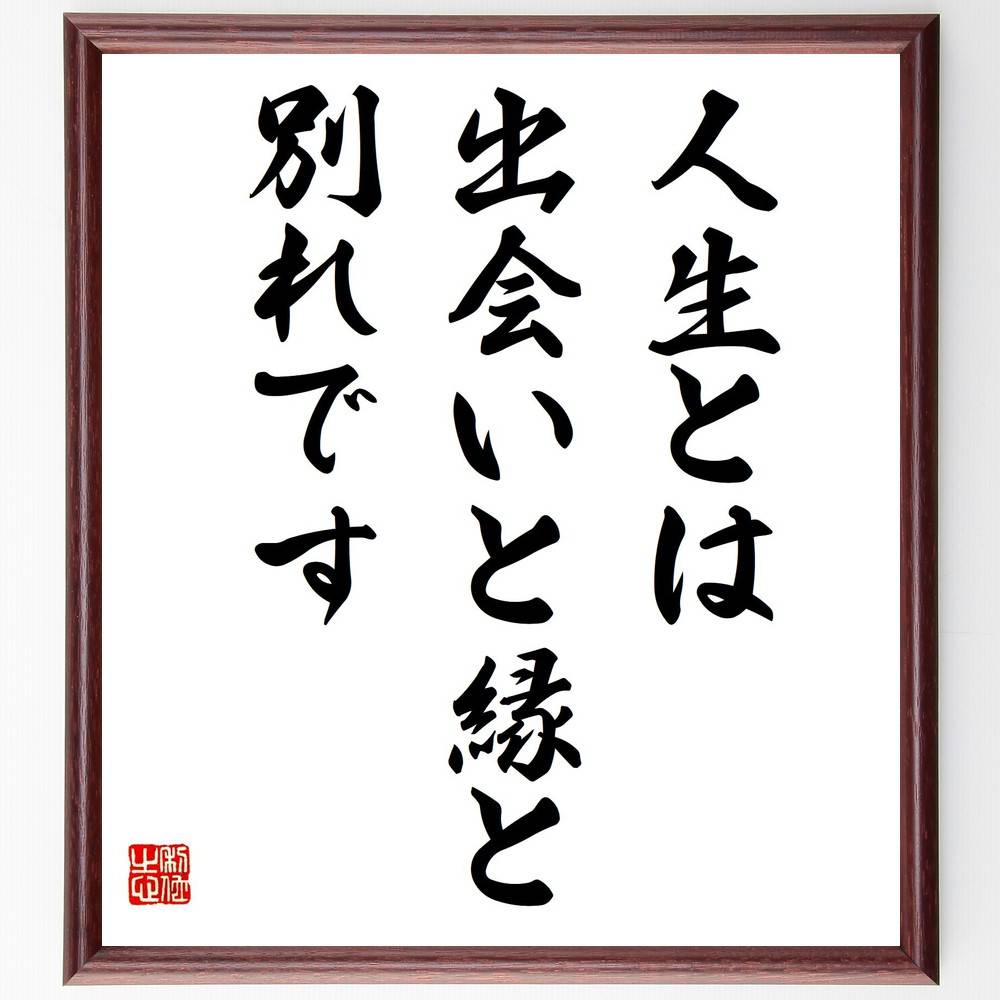 人生とは
出会いと縁と
別れです